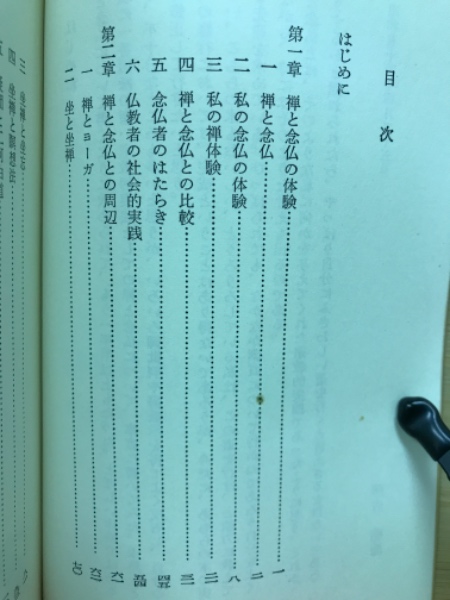 目次
はじめに
第一章 禅と念仏の体験……一
一 禅と念仏……二
二 私の念仏の体験……八
三 私の禅体験
四 禅と念仏との比較
五 念仏者のはたらき……四五
六 仏教者の社会的実践……五四
第二章 禅と念仏との周辺
一 禅とヨーガ
二 坐と坐禅……七〇
三 坐禅と坐忘
四 坐禅と瞑想法